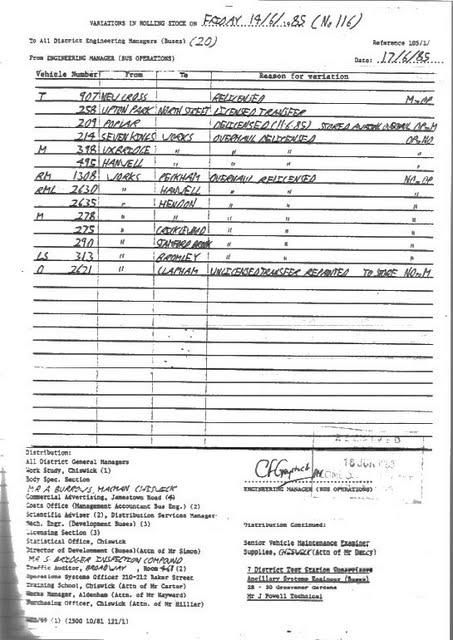 VARIATIONS IN ROLLING STOCK ON FRIDAY 14/6/1985 (No 116)
To All District Engineering Managers (Buses) (20)
Reference 105/1/
From ENGINEERING MANAGER (BUS OPERATIONS)
Date: 17/6/85.
Vehicle Number From To Reason for variation
T 907 NEW CROSS RELICENSED
258 UPTON PARK NORTH STREET LICENSED TRANSFER
209 POPLAR DELICENSED (11.6.85) STORED AWAITING OVERHAUL
214 SEVEN KINGS WORKS OVERHAUL DELICENSED
M 398 UXBRIDGE " " "
495 HANWELL " " "
RM 1308 WORKS PECKHAM OVERHAUL RELICENSED
RML 2630 " HANWELL " "
2635 " HENDON " "
M 278 " " " "
275 " CRICKLEWOOD " "
290 " STAMFORD BROOK " "
LS 313 " BROMLEY " "
D 2621 " CLAPHAM UNLICENSED TRANSFER REPAINTED TO STORE
Distribution:
All District General Managers
Work Study, Chiswick (1)
Body Spec. Section
MR A BURROWS, MACMAN CHISWICK
Commercial Advertising, Jamestown Road (4)
Costs Office (Management Accountant Bus Eng.) (2)
Scientific Adviser (2), Distribution Services Manager
Mech. Engr. (Development Buses) (3)
Licensing Section (3)
Statistical Office, Chiswick
Director of Development (Buses)(Attn of Mr Simon)
MR S BRIDGER INSPECTION COMPOUND
Traffic Auditor, BROADWAY, Room 467 (2)
Operations Systems Officer 210-212 Baker Street
Training School, Chiswick (Attn of Mr Carter)
Works Manager, Aldenham (Attn of Mr Hayward)
Purchasing Officer, Chiswick (Attn. of Mr Hillier)
(2500 10/81 121/1)
RECEIVED
18 JUN 1985
ENGINEERING MANAGER (BUS OPERATIONS)
Distribution Continued:
Senior Vehicle Maintenance Examiner
Supplies, CHISWICK (Attn of Mr Delcy)
7 District Test Station Supervisors
Ancillary Systems Engineer (Buses)
28 - 30 Grosvenor Gardens
Mr J Powell Technical